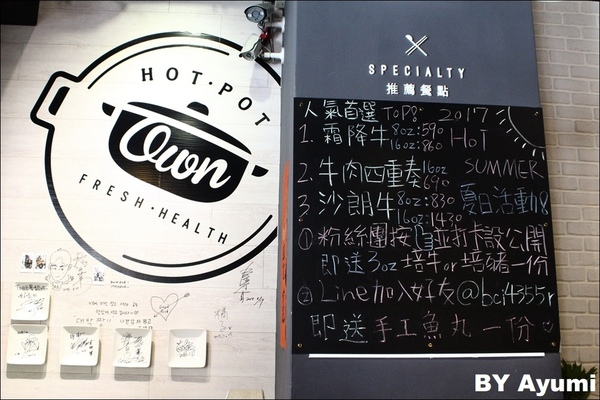 HOT·POT
Own
FRESH·HEALTH
SPECIALTY
推薦餐點
人氣首選 TOP8: 2017
1. 霜降牛 8oz:590 HOT
16oz:860
2. 牛肉四重奏 16oz SUMMER
690
3. 沙朗牛 8oz:830 夏日活動
16oz:1430
① 粉絲團按 並打卡設公開
即送3oz 培牛or培豬一份
② Line加入好友@bcj4355r
即送手工魚丸一份
BY Ayumi